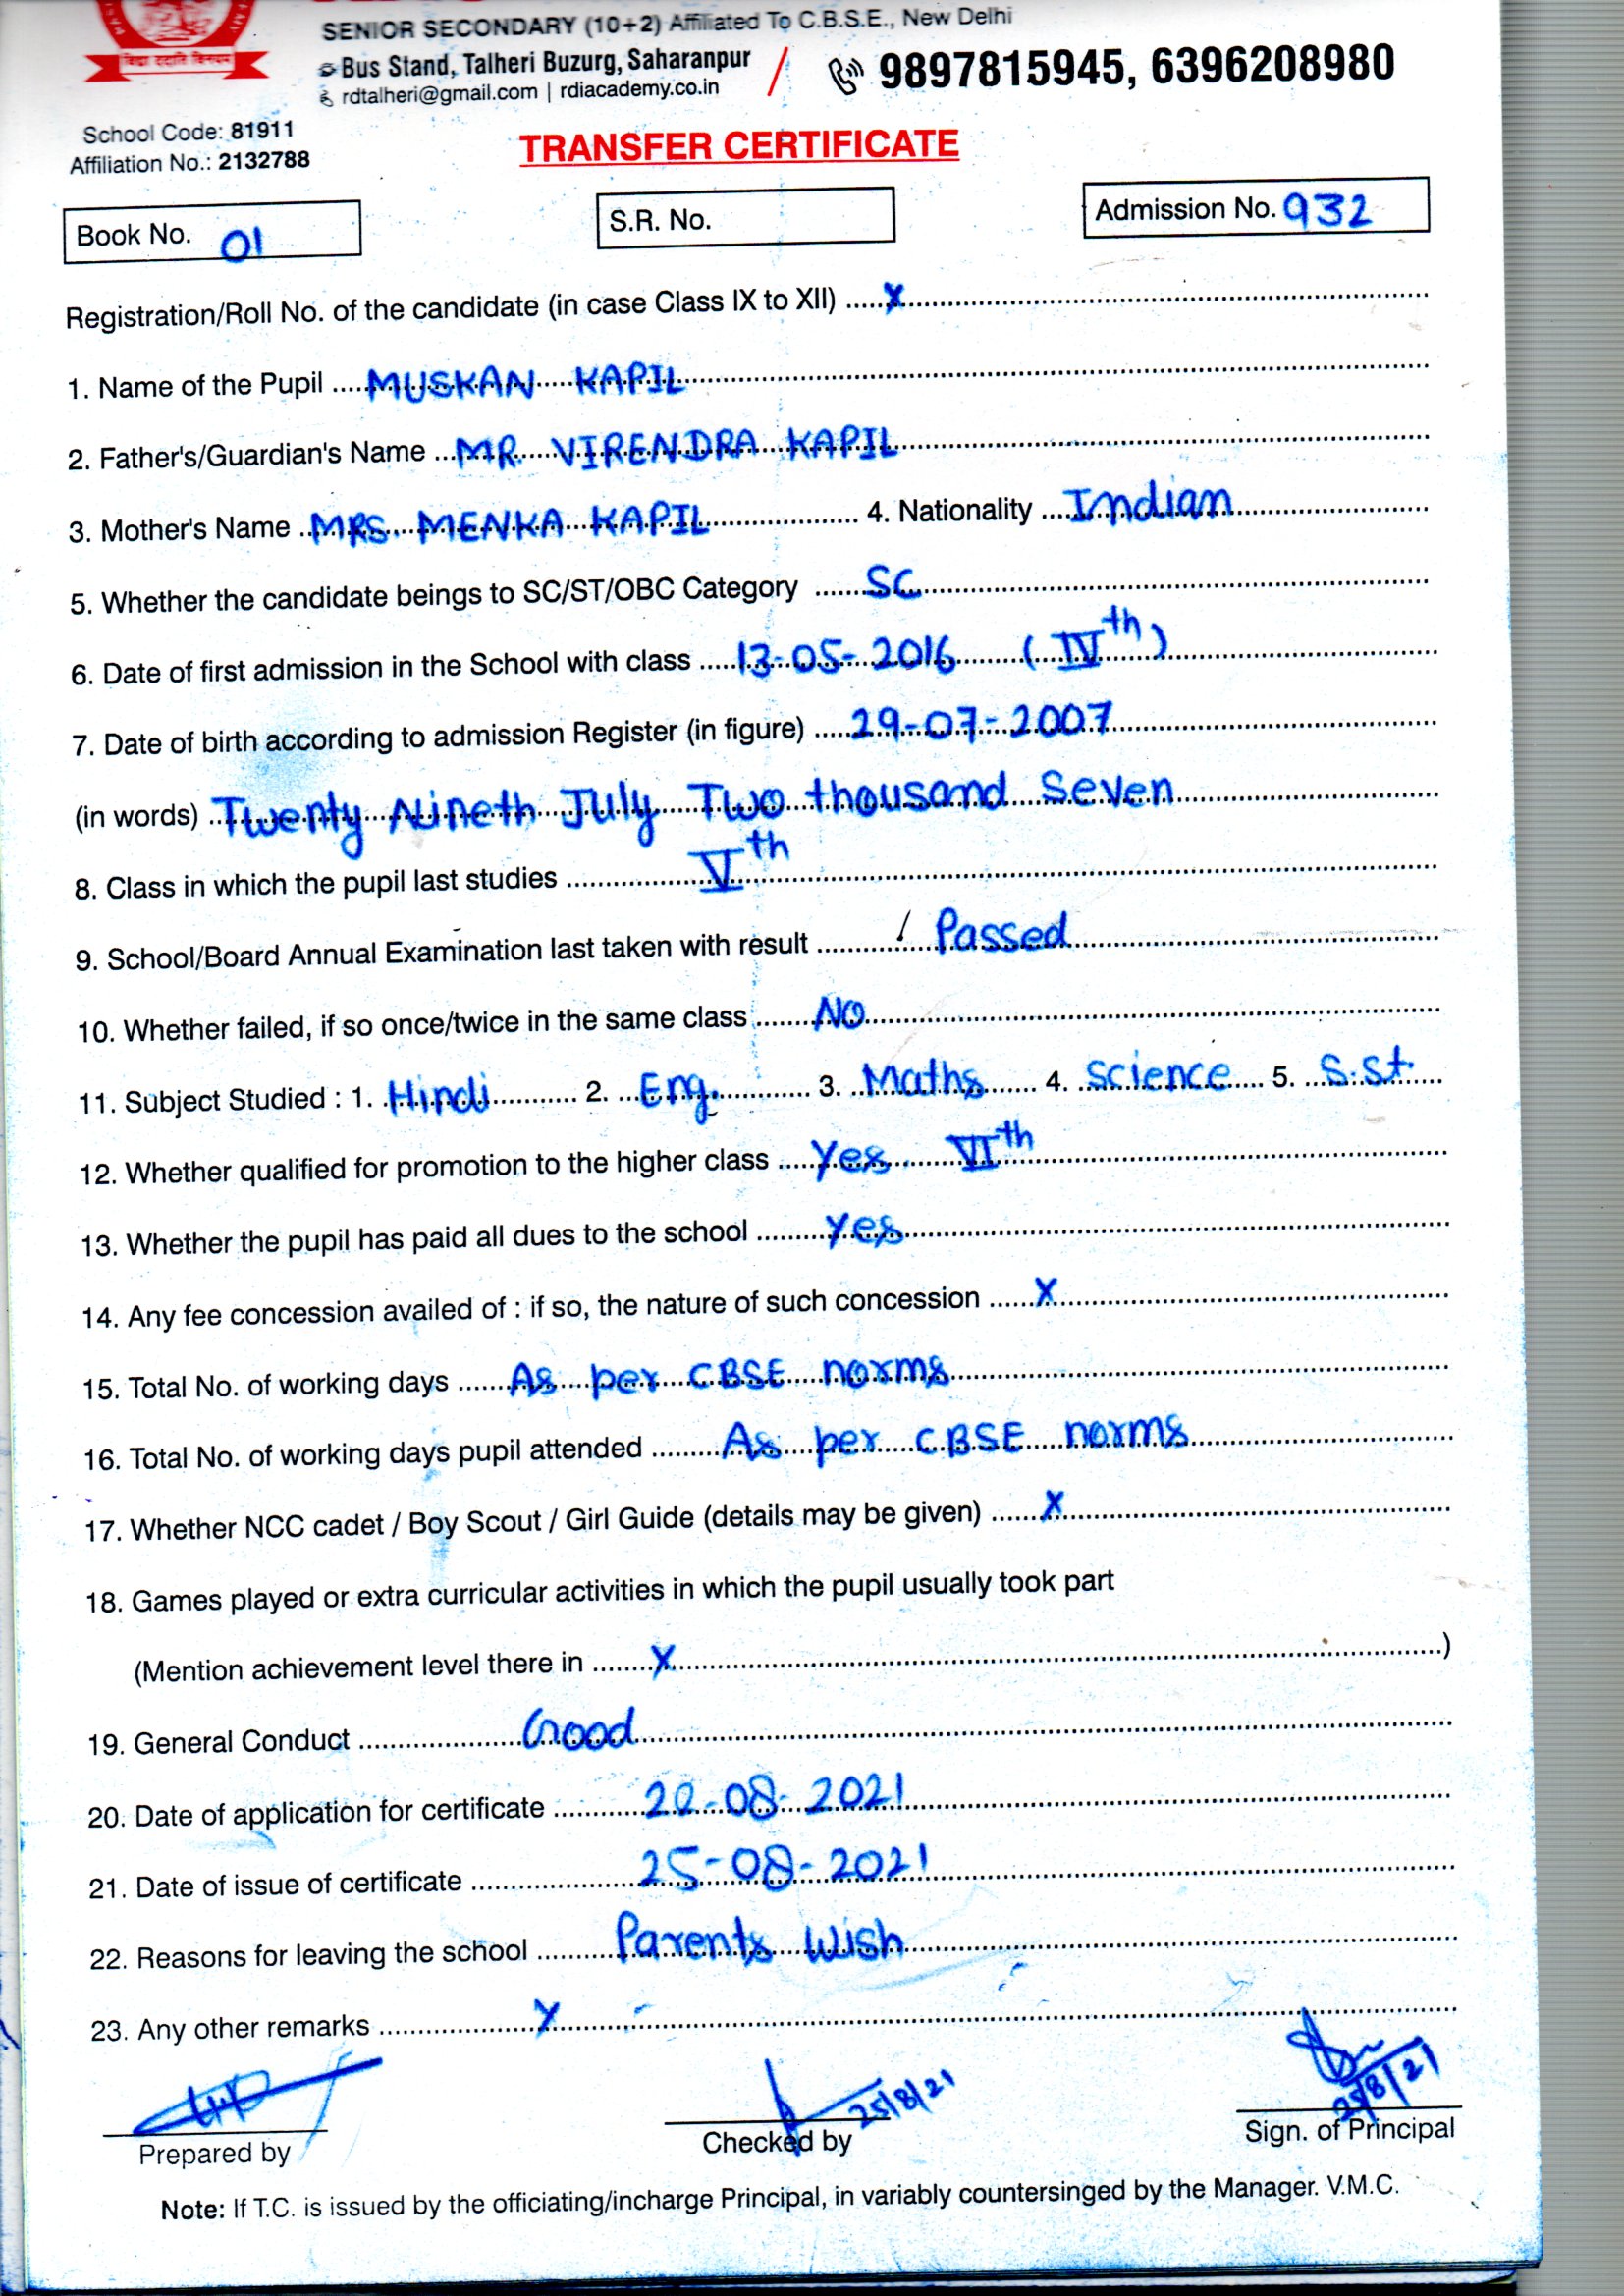 विद्या ददाति विनयम
SENIOR SECONDARY (10+2) Affiliated To C.B.S.E., New Delhi
Bus Stand, Talheri Buzurg, Saharanpur / 9897815945, 6396208980
rdtalheri@gmail.com | rdiacademy.co.in
School Code: 81911
Affiliation No.: 2132788
TRANSFER CERTIFICATE
Book No. 01 S.R. No. Admission No. 932
Registration/Roll No. of the candidate (in case Class IX to XII) ..... X
1. Name of the Pupil ..... MUSKAN KAPIL
2. Father's/Guardian's Name ... MR. VIRENDRA KAPIL
3. Mother's Name .. MRS. MENKA KAPIL ..... 4. Nationality .... Indian
5. Whether the candidate beings to SC/ST/OBC Category ....... SC
6. Date of first admission in the School with class ..... 13-05-2016 (IVth)
7. Date of birth according to admission Register (in figure) ..... 29-07-2007
(in words) .. Twenty Nineth July Two thousand Seven
8. Class in which the pupil last studies ..... Vth
9. School/Board Annual Examination last taken with result ..... Passed
10. Whether failed, if so once/twice in the same class ..... NO
11. Subject Studied : 1. Hindi 2. Eng. 3. Maths 4. Science 5. S.St.
12. Whether qualified for promotion to the higher class ..... Yes VIth
13. Whether the pupil has paid all dues to the school ..... Yes
14. Any fee concession availed of : if so, the nature of such concession ..... X
15. Total No. of working days ..... As per CBSE norms
16. Total No. of working days pupil attended ..... As per CBSE norms
17. Whether NCC cadet / Boy Scout / Girl Guide (details may be given) ..... X
18. Games played or extra curricular activities in which the pupil usually took part
(Mention achievement level there in ..... X .....)
19. General Conduct ..... Good
20. Date of application for certificate ..... 20-08-2021
21. Date of issue of certificate ..... 25-08-2021
22. Reasons for leaving the school ..... Parents Wish
23. Any other remarks ..... X
25/8/21 25/8/21
Prepared by Checked by Sign. of Principal
Note: If T.C. is issued by the officiating/incharge Principal, in variably countersinged by the Manager. V.M.C.